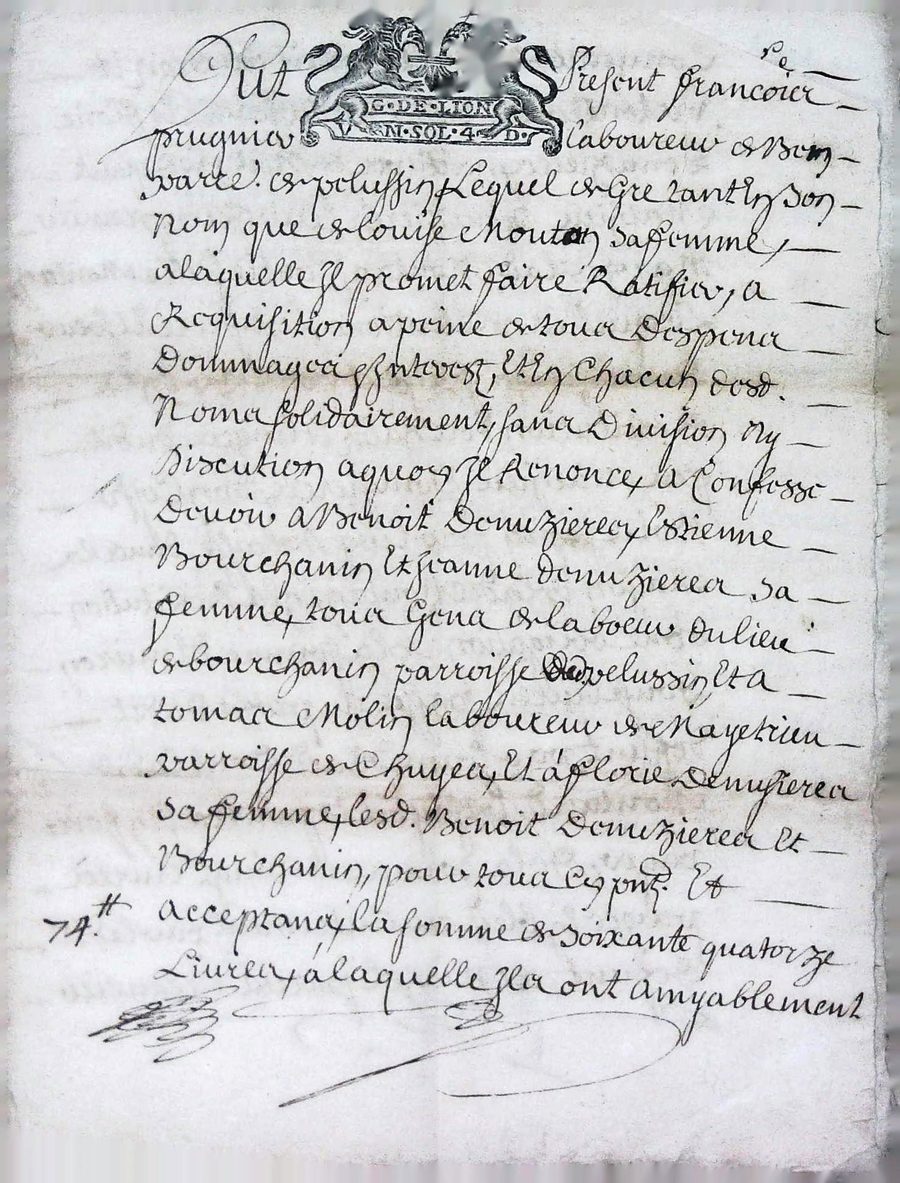 Sr
Fut Present francois
G·DE·LION
V N·SOL·4·D·
prugnier laboureur de Bem
parré. de pelussin, Lequel de Gre tant En Son
Nom que de louise Mouton sa femme,
a laquelle Il promet faire Ratifier, a
Requisition a peine de tous Despens
Dommages Interest, Et En Chacun desd.
Noms solidairement, sans Division Ny
Discution a quoy Il Renonce, a Confessé
Devoir a Benoit Demuzieres, Estienne
Bourchanin Et Jeanne demuzieres sa
femme, tous Gens de labeur du lieu
de bourchanin parroisse de pelussin, Et a
tomas Molin laboureur de Mayetrieu
parroisse de Chuyes, Et á florie Demusieres
sa femme, lesd. Benoit Demuzieres Et
Bourchanin, pour tous Cy pnt. Et
74.tt acceptans, la somme de soixante quatorze
Livres, á laquelle Ils ont amyablement